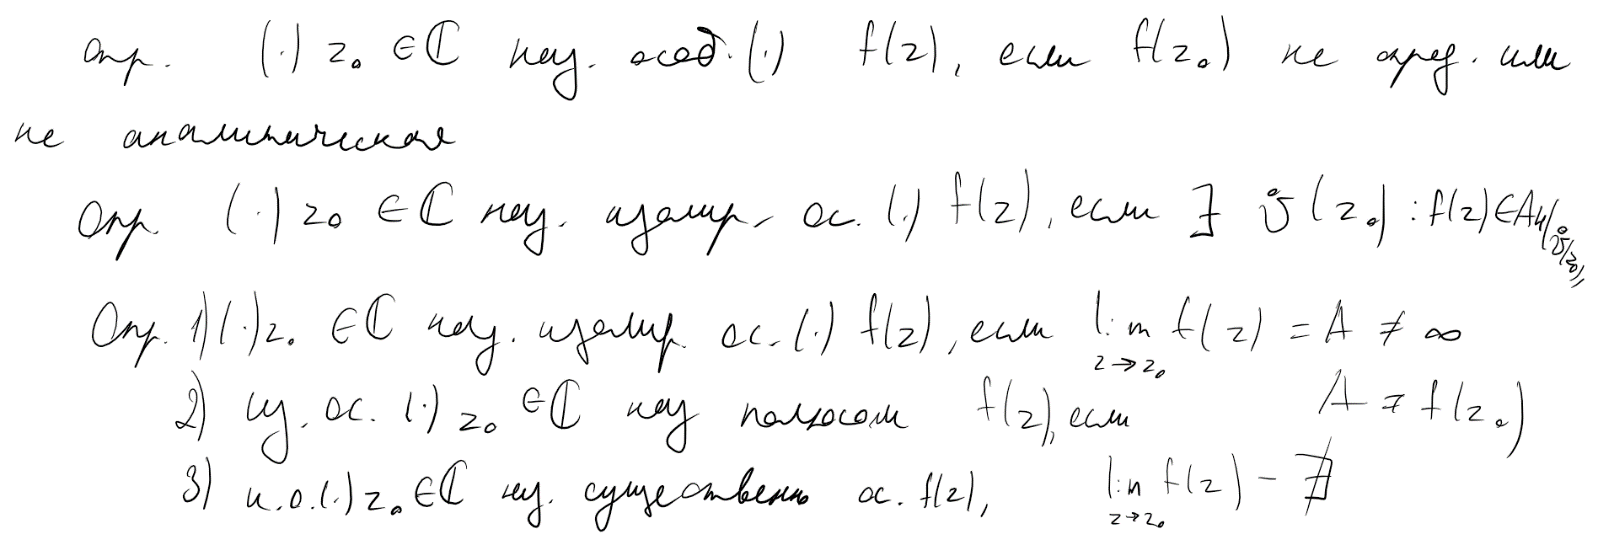 опр. (·) z₀ ∈ ℂ наз. особ. (·) f(z), если f(z₀) не опред. или
не аналитическая
Опр. (·) z₀ ∈ ℂ наз. изолир. ос. (·) f(z), если ∃ v̊(z₀) : f(z) ∈ Aн(v̊(z₀))
Опр. 1) (·) z₀ ∈ ℂ наз. изолир. ос. (·) f(z), если lim f(z) = A ≠ ∞
z→z₀
2) из. ос. (·) z₀ ∈ ℂ наз полюсом f(z), если A ≠ f(z₀)
3) и.о.(·) z₀ ∈ ℂ наз. существенно ос. f(z), lim f(z) - ∄
z→z₀